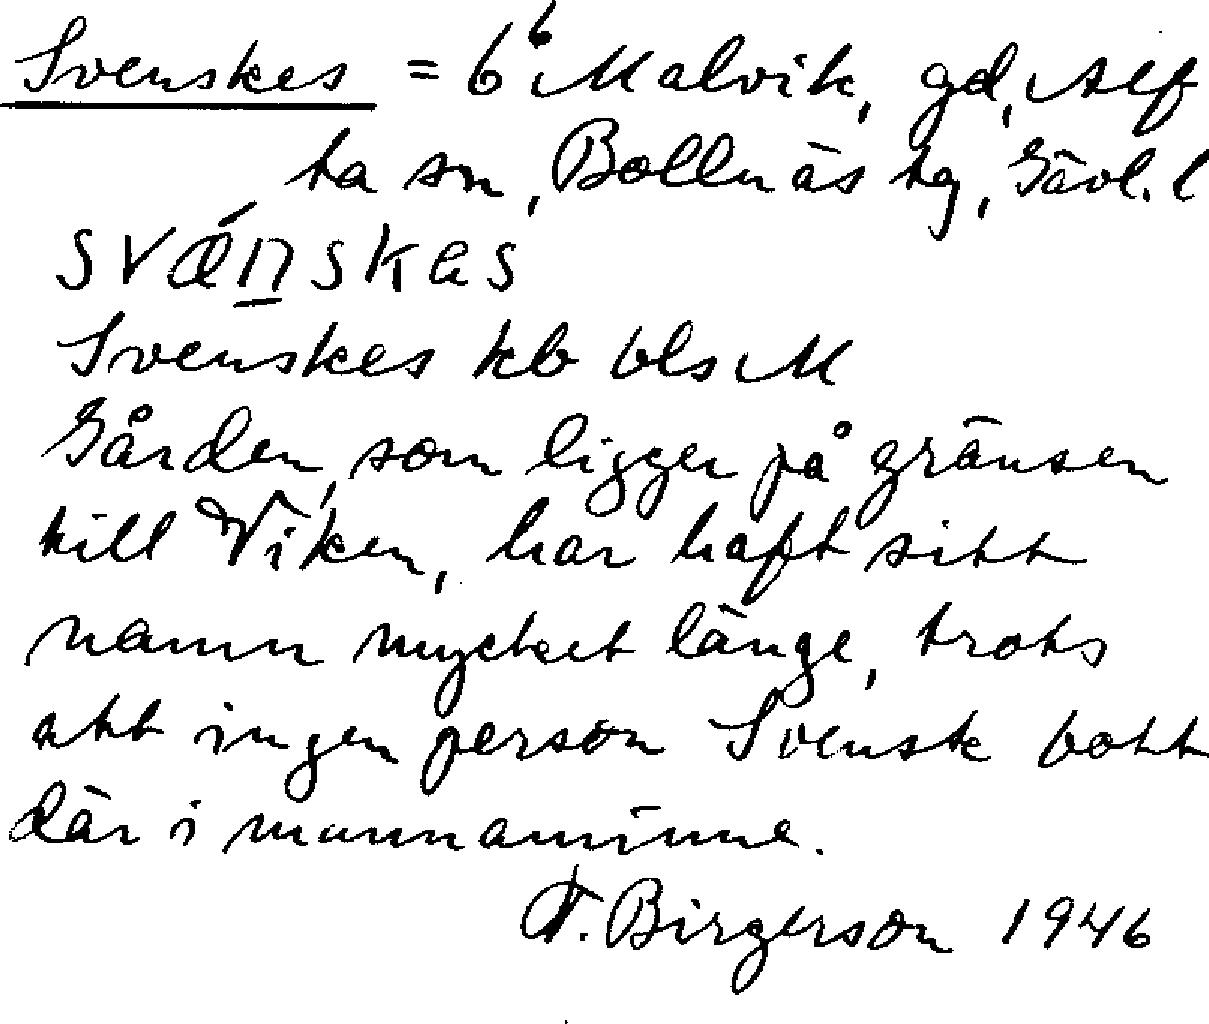 Svenskes = 6⁶ Malvik, gd, Alf
ta sn, Bollnäs tg, Gävl. l
svǽn̲skas
Svenskes kb bls M
Gården, som ligger på gränsen
till Viken, har haft sitt
namn mycket länge, trots
att ingen person Svensk bott
där i mannaminne.
F. Birgerson 1946